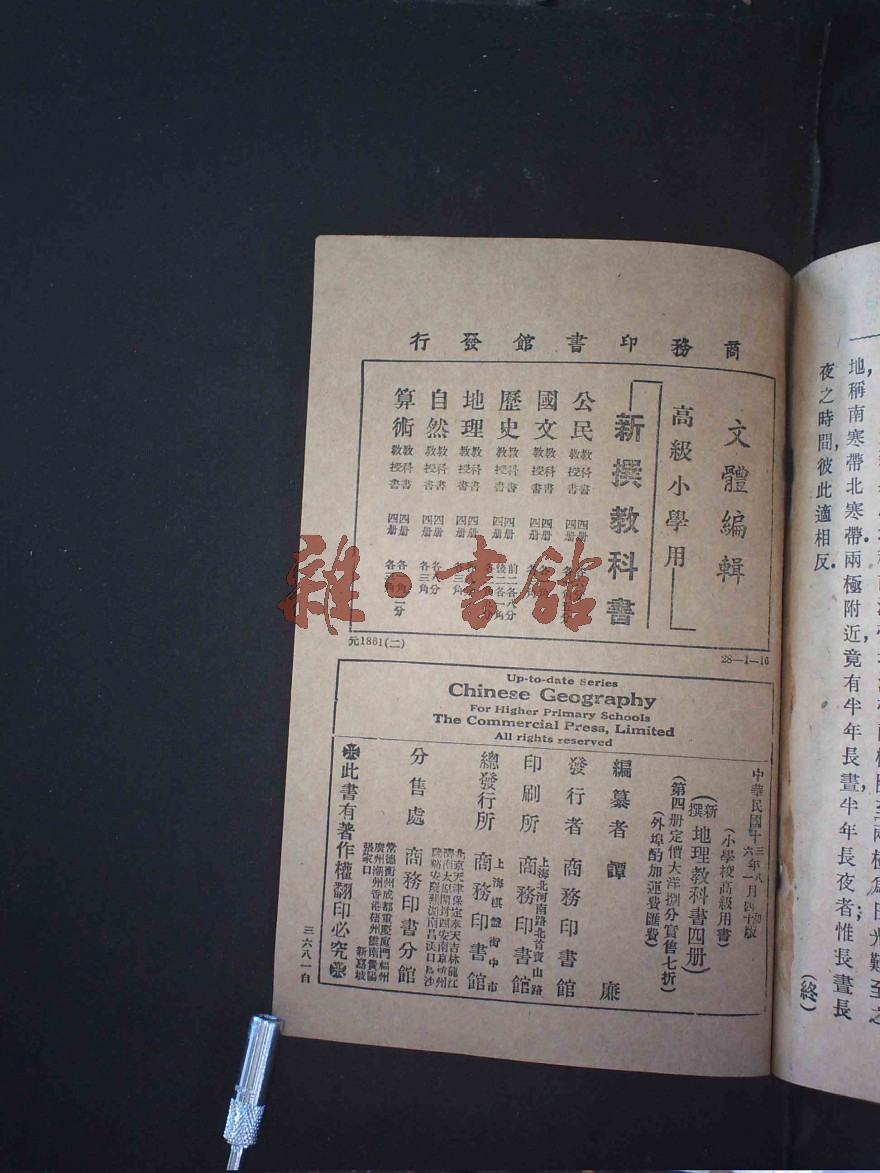 地稱南寒帶北寒帶兩極附近,竟有半年長晝,半年長夜者;惟長晝長
夜之時間,彼此適相反.
(終)
商務印書館發行
文體編輯
高級小學用
新撰教科書
公民 教科書 四册 教授書 四册
國文 教科書 四册 教授書 四册
歷史 教科書 四册 教授書 四册
地理 教科書 四册 教授書 四册
自然 教科書 四册 教授書 四册 各八分 各三角
算術 教科書 四册 教授書 四册
元1861(二)
28—1—16
雜·書館
Up-to-date Series
Chinese Geography
For Higher Primary Schools
The Commercial Press, Limited
All rights reserved
中華民國十三年八月初版
六年一月四十版
(小學校高級用書)
(新撰地理教科書四册)
(第四册定價大洋捌分實售七折)
(外埠酌加運費匯費)
編纂者 譚廉
發行者 商務印書館
印刷所 上海北河南路北首寶山路 商務印書館
總發行所 上海棋盤街中市 商務印書館
分售處 商務印書分館
北京天津保定奉天吉林龍江
濟南太原開封西安南京杭州
常德衡州成都重慶廈門福州
廣州潮州香港梧州雲南貴陽
張家口 新嘉坡
此書有著作權翻印必究
三六八一自